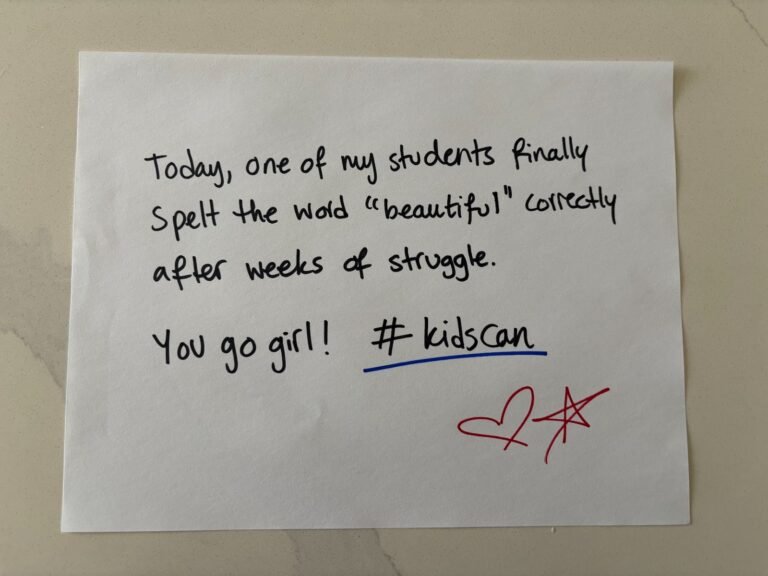 Today, one of my students finally
Spelt the word "beautiful" correctly
after weeks of struggle.
You go girl! #kidscan